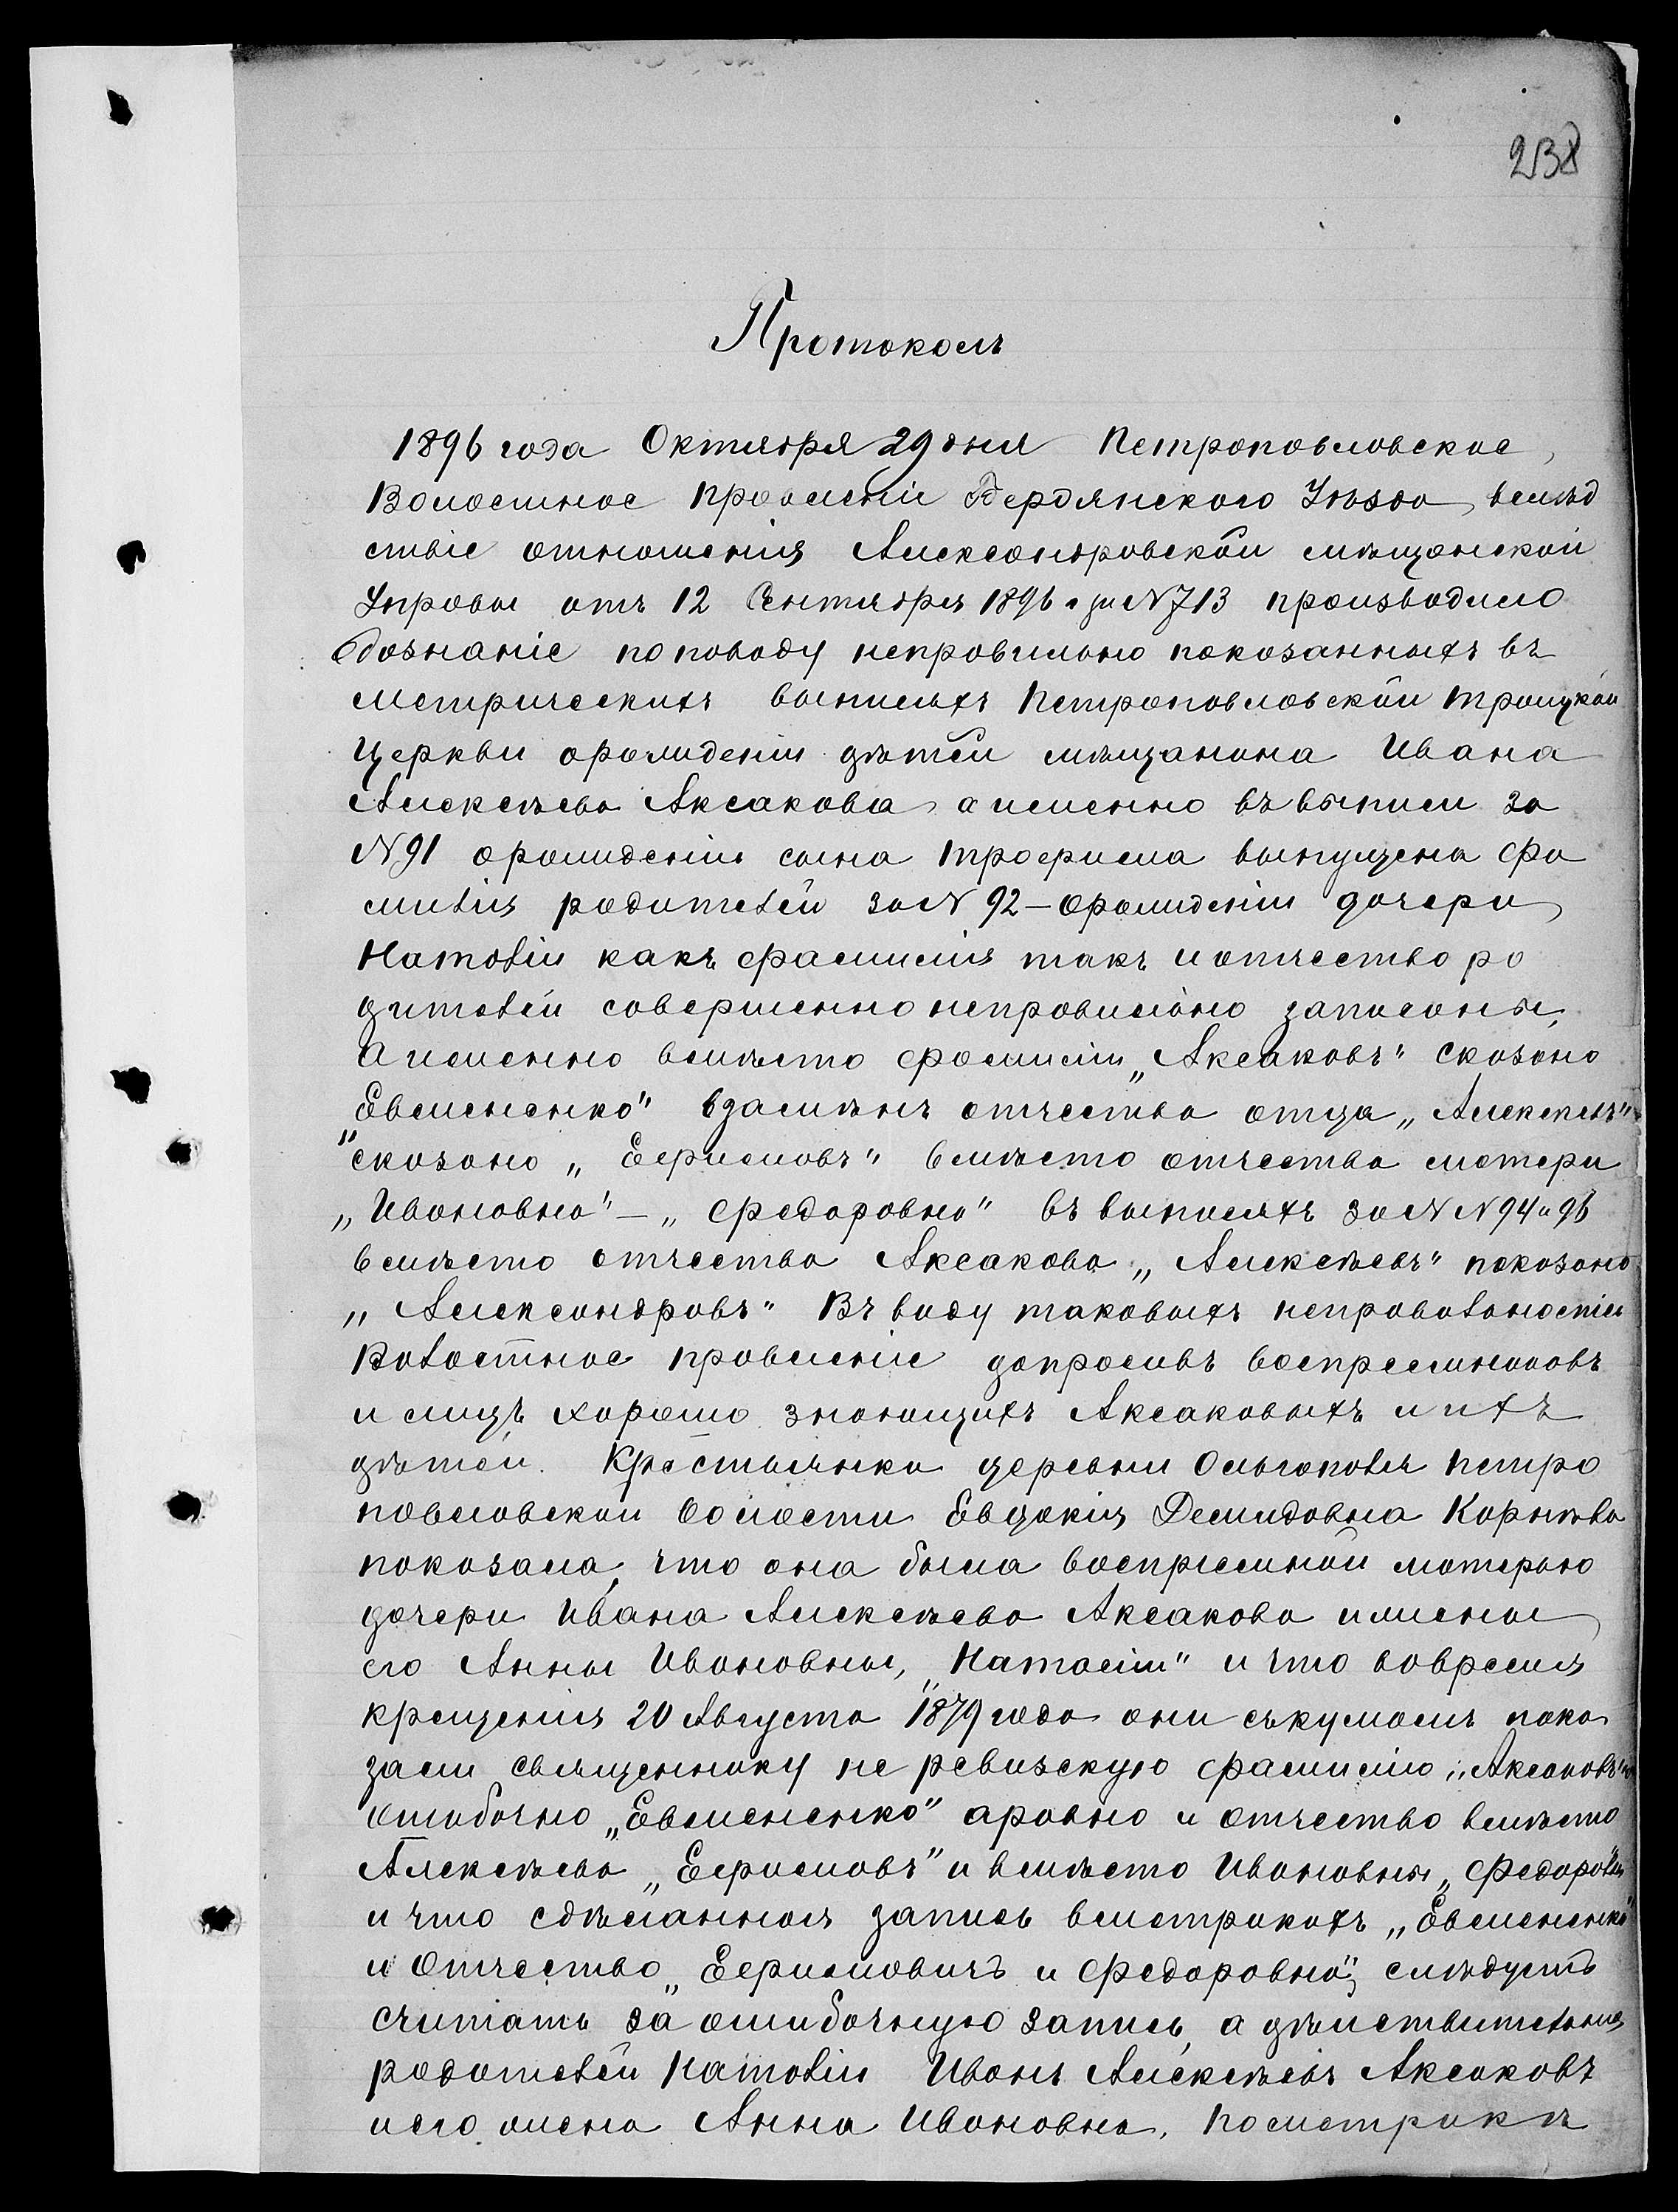 238
Протоколъ
1896 года Октября 29 дня Петропавловское,
Волостное правленіе Бердянскаго Уѣзда, вслѣд
ствіе отношенія Александровской мѣщанской
Управы отъ 12 Сентября 1896 г за N 713 производило
дознаніе по поводу неправильно показанныхъ въ
метрическихъ выписяхъ Петропавловской Троицкой
Церкви о рожденіи дѣтей мѣщанина Ивана
Алексѣева Аксакова, а именно въ выписи за
N 91 о рожденіи сына Трофима выпущена фа
милія родителей за N 92 — о рожденіи дочери
Наталіи какъ фамилія такъ и отчество ро
дителей совершенно неправильно записаны,
а именно вмѣсто фамиліи „Аксаковъ" сказано
„Евмененко" взамѣнъ отчества отца „Алексѣевъ"
сказано „Ефимовъ" вмѣсто отчества матери
„Ивановна" — „Федоровна" въ выписяхъ за N N 94 и 96
вмѣсто отчества Аксакова „Алексѣевъ" показано
„Александровъ" Въ виду таковыхъ неправильностей
Волостное правленіе допросивъ воспреемниковъ
и лицъ хорошо знающихъ Аксаковыхъ и ихъ
дѣтей. Крестьянка деревни Ольгополя Петро
павловской волости Евдокія Демидовна Корнѣва
показала, что она была воспреемной матерью
дочери Ивана Алексѣева Аксакова и жены
его Анны Ивановны, „Наталіи" и что во время
крещенія 20 Августа 1879 года они съ кумомъ пока
зали священнику не ревизскую фамилію „Аксаковъ" а
ошибочно „Евмененко" а ровно и отчество вмѣсто
Алексѣева „Ефимовъ" и вмѣсто Ивановны „Федоровна"
и что сдѣланная запись в метрикахъ „Евмененко"
и отчество „Ефимовичъ и Федоровна", слѣдуетъ
считать за ошибочную запись, а дѣйствительныя
родителей Наталіи Иванъ Алексѣевъ Аксаковъ
и его жена Анна Ивановна. По метрикѣ